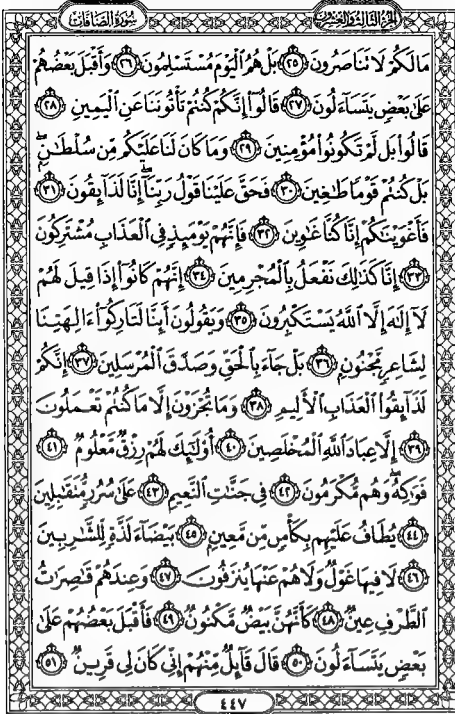 الجزء الثالث والعشرون سورة الصافات
مَالَكُمْ لَا نَنَاصَرُونَ ٢٥ بَلْ هُمُ ٱلْيَوْمَ مُسْتَسْلِمُونَ ٢٦ وَأَقْبَلَ بَعْضُهُمْ
عَلَىٰ بَعْضٍ يَتَسَآءَلُونَ ٢٧ قَالُوٓا۟ إِنَّكُمْ كُنتُمْ تَأْتُونَنَا عَنِ ٱلْيَمِينِ ٢٨
قَالُوا۟ بَل لَّمْ تَكُونُوا۟ مُؤْمِنِينَ ٢٩ وَمَا كَانَ لَنَا عَلَيْكُم مِّن سُلْطَٰنٍۭ ۖ
بَلْ كُنتُمْ قَوْمًا طَٰغِينَ ٣٠ فَحَقَّ عَلَيْنَا قَوْلُ رَبِّنَآ ۖ إِنَّا لَذَآئِقُونَ ٣١
فَأَغْوَيْنَٰكُمْ إِنَّا كُنَّا غَٰوِينَ ٣٢ فَإِنَّهُمْ يَوْمَئِذٍ فِى ٱلْعَذَابِ مُشْتَرِكُونَ
٣٣ إِنَّا كَذَٰلِكَ نَفْعَلُ بِٱلْمُجْرِمِينَ ٣٤ إِنَّهُمْ كَانُوٓا۟ إِذَا قِيلَ لَهُمْ
لَآ إِلَٰهَ إِلَّا ٱللَّهُ يَسْتَكْبِرُونَ ٣٥ وَيَقُولُونَ أَئِنَّا لَتَارِكُوٓا۟ ءَالِهَتِنَا
لِشَاعِرٍ مَّجْنُونٍۭ ٣٦ بَلْ جَآءَ بِٱلْحَقِّ وَصَدَّقَ ٱلْمُرْسَلِينَ ٣٧ إِنَّكُمْ
لَذَآئِقُوا۟ ٱلْعَذَابِ ٱلْأَلِيمِ ٣٨ وَمَا تُجْزَوْنَ إِلَّا مَا كُنتُمْ تَعْمَلُونَ
٣٩ إِلَّا عِبَادَ ٱللَّهِ ٱلْمُخْلَصِينَ ٤٠ أُو۟لَٰٓئِكَ لَهُمْ رِزْقٌ مَّعْلُومٌ ٤١
فَوَٰكِهُ ۖ وَهُم مُّكْرَمُونَ ٤٢ فِى جَنَّٰتِ ٱلنَّعِيمِ ٤٣ عَلَىٰ سُرُرٍ مُّتَقَٰبِلِينَ
٤٤ يُطَافُ عَلَيْهِم بِكَأْسٍ مِّن مَّعِينٍۭ ٤٥ بَيْضَآءَ لَذَّةٍ لِّلشَّٰرِبِينَ
٤٦ لَا فِيهَا غَوْلٌ وَلَا هُمْ عَنْهَا يُنزَفُونَ ٤٧ وَعِندَهُمْ قَٰصِرَٰتُ
ٱلطَّرْفِ عِينٌ ٤٨ كَأَنَّهُنَّ بَيْضٌ مَّكْنُونٌ ٤٩ فَأَقْبَلَ بَعْضُهُمْ عَلَىٰ
بَعْضٍ يَتَسَآءَلُونَ ٥٠ قَالَ قَآئِلٌ مِّنْهُمْ إِنِّى كَانَ لِى قَرِينٌ ٥١
٤٤٧